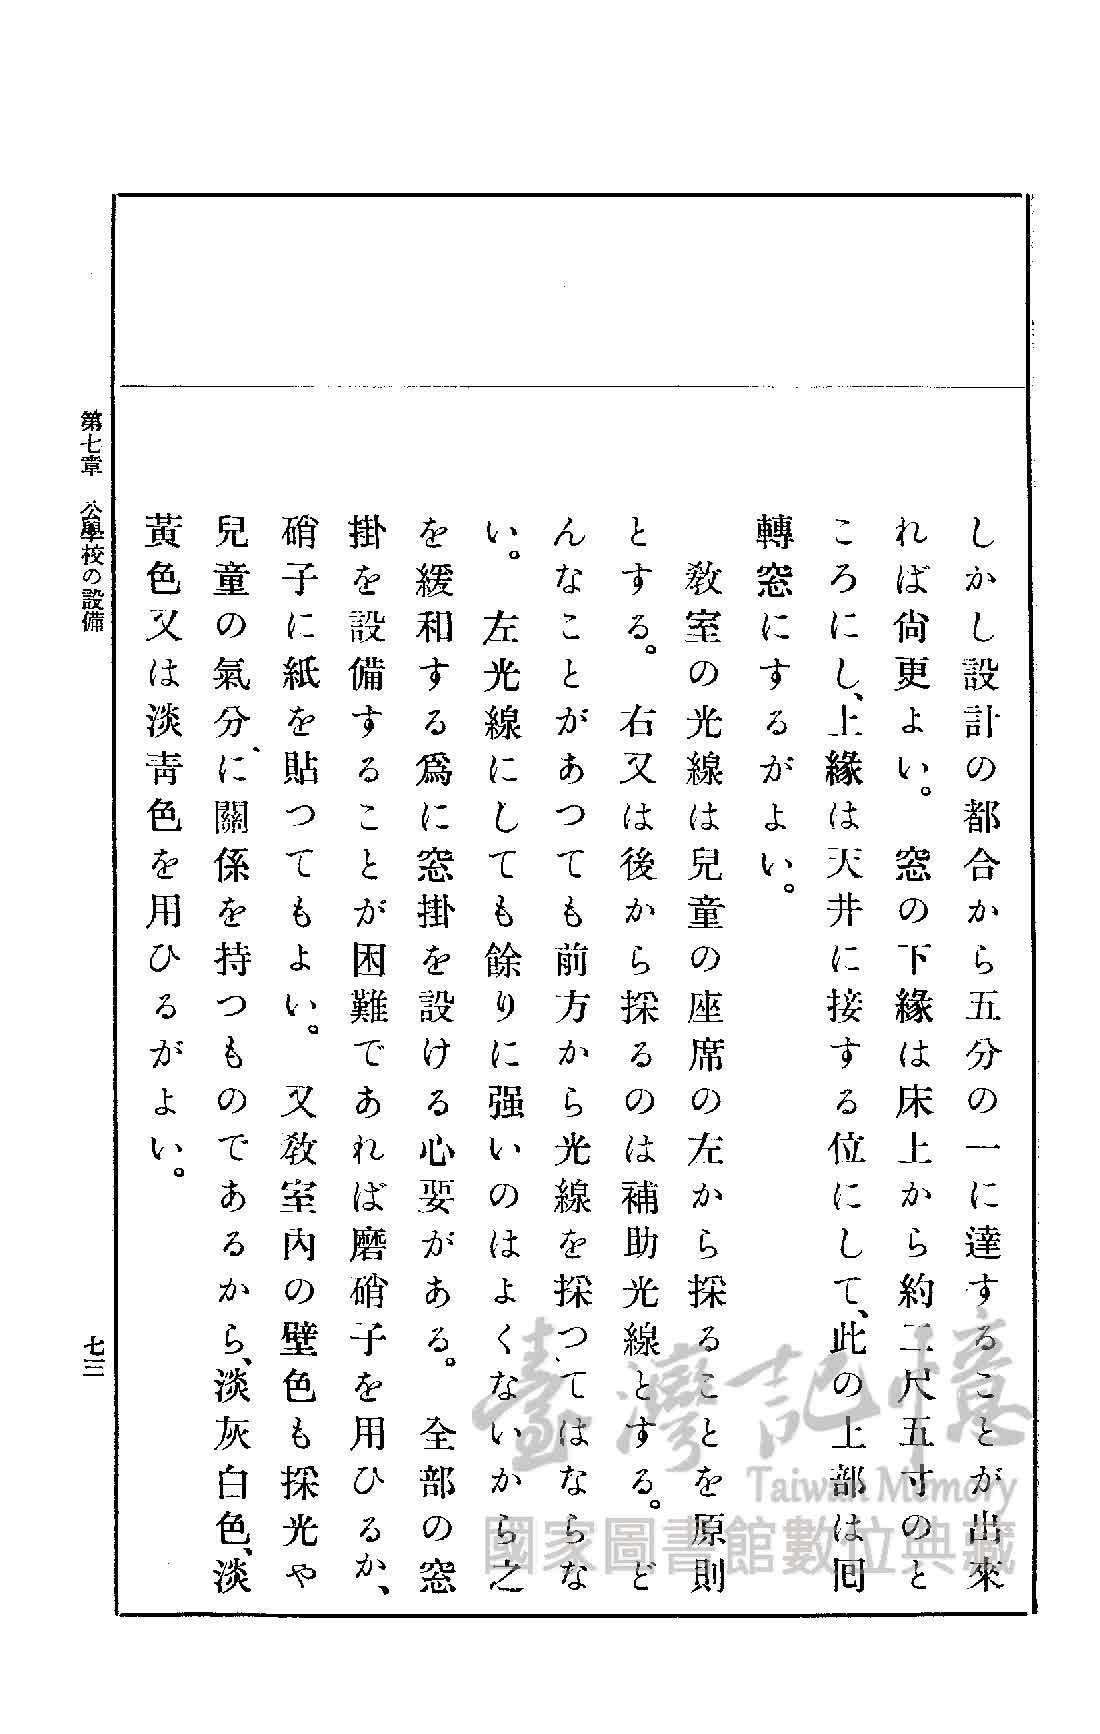 しかし設計の都合から五分の一に達することが出來
れば尙更よい。窓の下緣は床上から約二尺五寸のと
ころにし、上緣は天井に接する位にして、此の上部は囘
轉窓にするがよい。
敎室の光線は兒童の座席の左から採ることを原則
とする。右又は後から採るのは補助光線とする。ど
んなことがあつても前方から光線を採つてはならな
い。左光線にしても餘りに强いのはよくないから之
を緩和する爲に窓掛を設ける心要がある。全部の窓
掛を設備することが困難であれば磨硝子を用ひるか、
硝子に紙を貼つてもよい。又敎室內の壁色も採光や
兒童の氣分、に關係を持つものであるから、淡灰白色、淡
黃色又は淡靑色を用ひるがよい。
第七章 公學校の設備
七三
臺灣記憶
Taiwan Memory
國家圖書館數位典藏